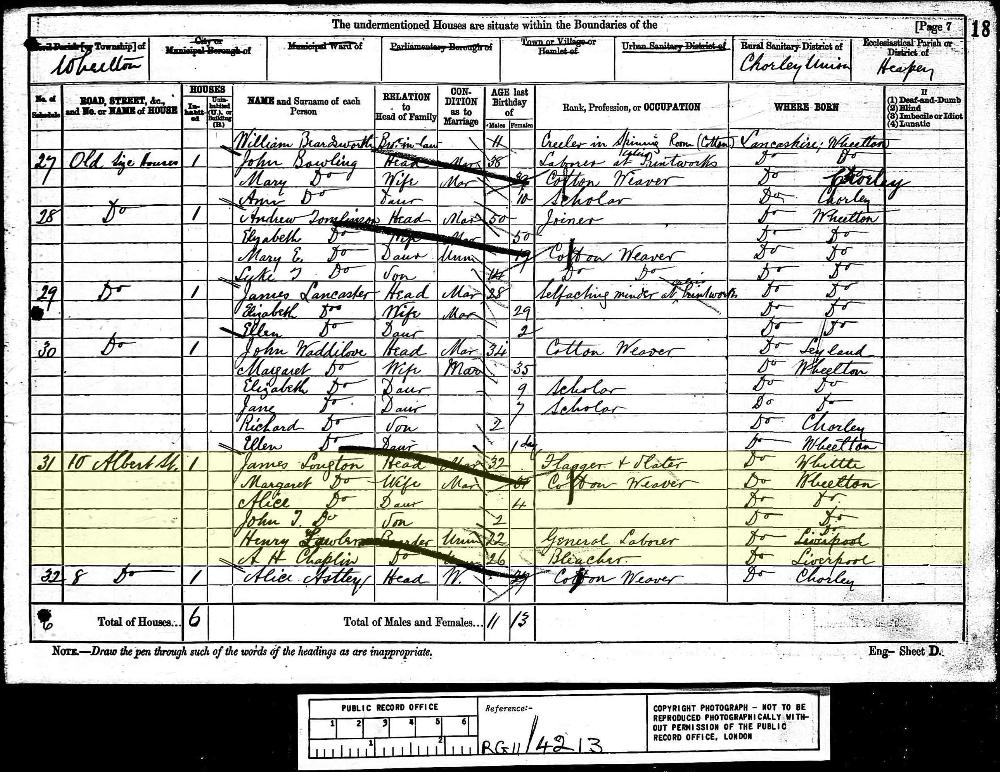 The undermentioned Houses are situate within the Boundaries of the [Page 7 18
Civil Parish [or Township] of City or Municipal Borough of Municipal Ward of Parliamentary Borough of Town or Village or Hamlet of Urban Sanitary District of Rural Sanitary District of Ecclesiastical Parish or District of
Wheelton Chorley Union Heapey
No. of Schedule ROAD, STREET, &c., and No. or NAME of HOUSE HOUSES In-habit-ed Unin-habited (U.), or Building (B.) NAME and Surname of each Person RELATION to Head of Family CON-DITION as to Marriage AGE last Birthday of Males Females Rank, Profession, or OCCUPATION WHERE BORN If (1) Deaf-and-Dumb (2) Blind (3) Imbecile or Idiot (4) Lunatic
William Beardsworth Bro-in-law 11 Creeler in Spinning Room (Cotton) Lancashire; Wheelton
27 Old Size Houses 1 John Bowling Head Mar 38 Laborer at Printworks Do Do
Mary Do Wife Mar Cotton Weaver Do Chorley
Ann Do Daur 10 Scholar Do Chorley
28 Do 1 Andrew Tomlinson Head Mar 50 Joiner Do Wheelton
Elizabeth Do Wife Mar 50 Do Do
Mary E. Do Daur Unm 19 Cotton Weaver Do Do
Luke T Do Son 14 Do Do Do Do
29 Do 1 James Lancaster Head Mar 28 Selfacting minder at Printworks Do Do
Elizabeth Do Wife Mar 29 Do Do
Ellen Do Daur 2 Do Do
30 Do 1 John Waddilove Head Mar 34 Cotton Weaver Do Leyland
Margaret Do Wife Mar 35 Do Wheelton
Elizabeth Do Daur 9 Scholar Do Do
Jane Do Daur 7 Scholar Do Do
Richard Do Son 2 Do Chorley
Ellen Do Daur 1 day Do Wheelton
31 10 Albert St. 1 James Longton Head Mar 32 Flagger & Slater Do Whittle
Margaret Do Wife Mar Cotton Weaver Do Wheelton
Alice Do Daur 4 Do Do
John T. Do Son 2 Do Do
Henry Lawler Boarder Unm 22 General Laborer Do Liverpool
A H Chaplin Do Unm 26 Bleacher Do Liverpool
32 8 Do 1 Alice Astley Head W. Cotton Weaver Do Chorley
6 Total of Houses... 6 Total of Males and Females... 11 13
NOTE.—Draw the pen through such of the words of the headings as are inappropriate. Eng- Sheet D.
PUBLIC RECORD OFFICE
1 2 3 4 5 6
1 2
Reference:-
RG11/4213
COPYRIGHT PHOTOGRAPH - NOT TO BE
REPRODUCED PHOTOGRAPHICALLY WITH-
OUT PERMISSION OF THE PUBLIC
RECORD OFFICE, LONDON